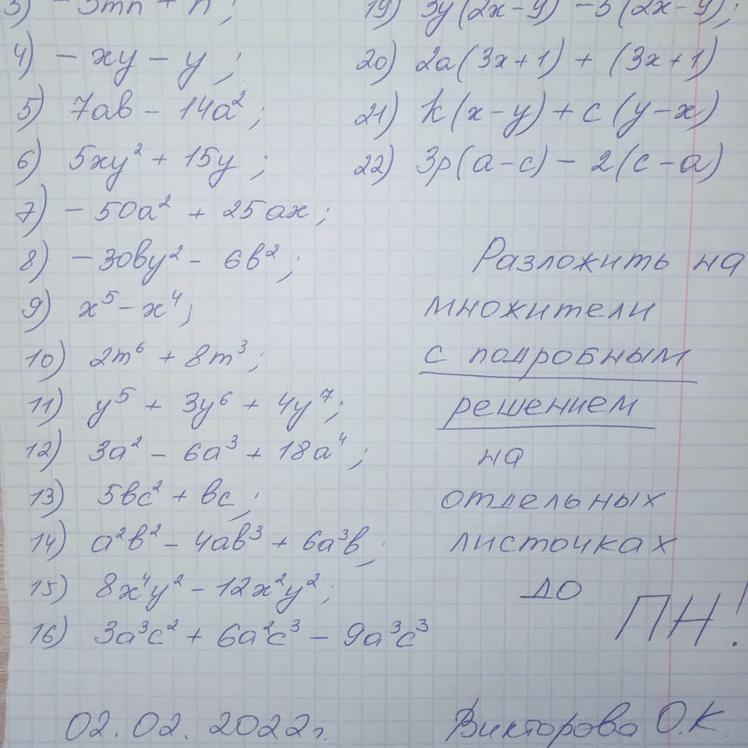 3) - 3mn + n;
4) - xy - y;
5) 7ab - 14a²;
6) 5xy² + 15y;
7) - 50a² + 25ax;
8) - 30by² - 6b²;
9) x⁵ - x⁴;
10) 2m⁶ + 8m³;
11) y⁵ + 3y⁶ + 4y⁷;
12) 3a² - 6a³ + 18a⁴;
13) 5bc² + bc;
14) a²b² - 4ab³ + 6a³b;
15) 8x⁴y² - 12x²y²;
16) 3a³c² + 6a²c³ - 9a³c³
19) 3y(2x-9) - 5(2x-9);
20) 2a(3x+1) + (3x+1)
21) k(x-y) + c(y-x)
22) 3p(a-c) - 2(c-a)
Разложить на
множители
с подробным
решением
на
отдельных
листочках
до ПН!
02.02.2022г.
Викторова О.К.